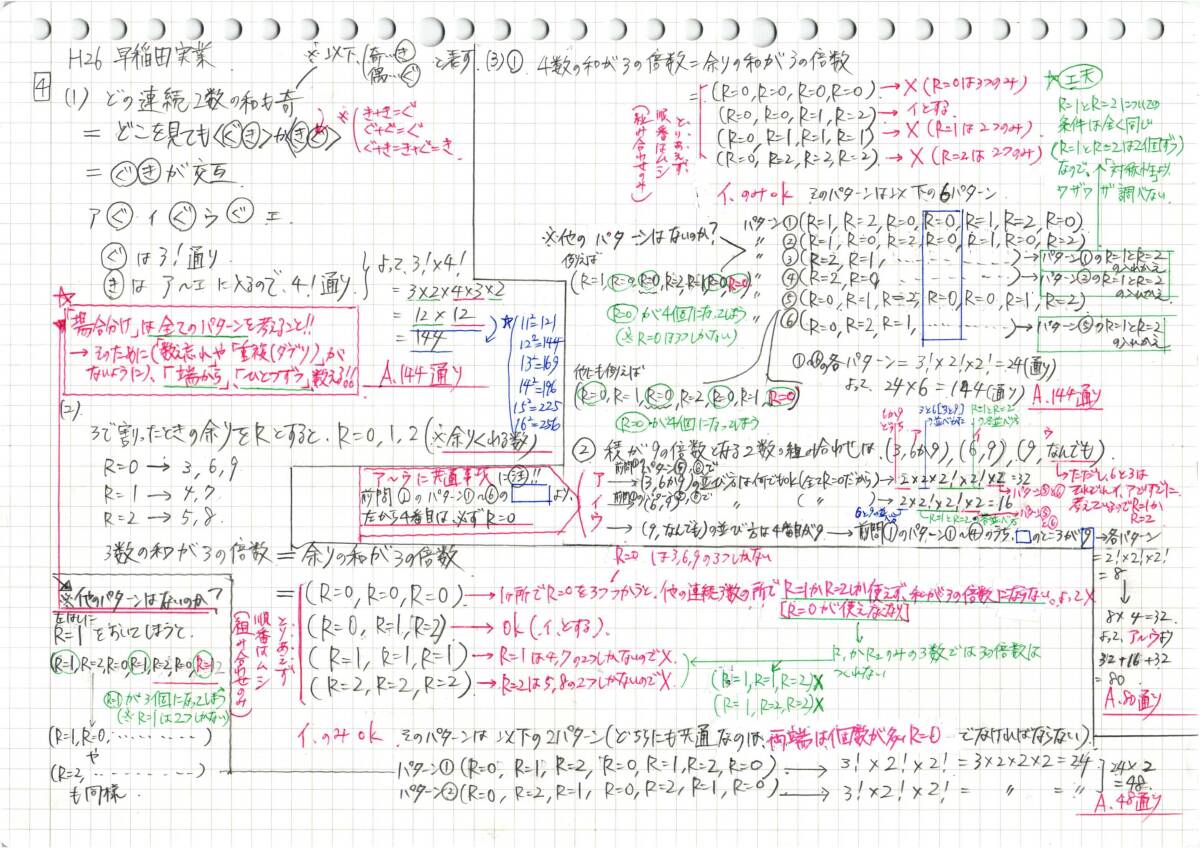 H26 早稲田実業
※以下、(奇…き 偶…ぐ と表す.
4
(1) どの連続2数の和も奇
= どこを見ても〈ぐき〉か〈きぐ〉
※(き+き=ぐ
ぐ+ぐ=ぐ
ぐ+き=き+ぐ=き.
= ぐきが交互.
ア ぐ イ ぐ ウ ぐ エ
ぐは3!通り
きはア〜エに入るので、4!通り.
よって 3!×4!
= 3×2×4×3×2
= 12×12
= 144
A.144通り
☆11²=121
12²=144
13²=169
14²=196
15²=225
16²=256
☆「場合分け」は全てのパターンを考えること!!
→そのために(「数え忘れ」や「重複(ダブリ)」が
ないように)、「端から」、「ひとつずつ」数える!!
(2)
3で割ったときの余りをRとすると、R=0,1,2 (※余りくわる数)
R=0 → 3,6,9
R=1 → 4,7
R=2 → 5,8
3数の和が3の倍数 = 余りの和が3の倍数
とりあえず、順番はムシ(組み合わせのみ)
= (R=0, R=0, R=0) → 1ヶ所でR=0を3つつかうと、他の連続3数の所でR=1かR=2しか使えず、和が3の倍数にならない。よって×
[R=0が使えなくなり]
(R=0, R=1, R=2) → ok (イ.とする).
(R=1, R=1, R=1) → R=1は4,7の2つしかないので×.
(R=2, R=2, R=2) → R=2は5,8の2つしかないので×.
R₁かR₂のみの3数では3の倍数はつくれない
(R=1, R=1, R=2)×
(R=1, R=2, R=2)×
イ.のみok そのパターンは以下の2パターン(どちらにも共通なのは、両端は個数が多いR=0でなければならない).
パターン①(R=0, R=1, R=2, R=0, R=1, R=2, R=0) → 3!×2!×2! = 3×2×2×2=24
パターン②(R=0, R=2, R=1, R=0, R=2, R=1, R=0) → 3!×2!×2! = 〃 = 〃
24×2
=48.
A.48通り
※他のパターンはないのか?
左はしに
R=1をおいてしまうと.
(R=1, R=2, R=0, R=1, R=2, R=0, R=1)
R=1が3個になってしまう
(※R=1は2つしかない)
(R=1, R=0, ………)
や
(R=2, ………)
も同様.
(3)① 4数の和が3の倍数=余りの和が3の倍数
とりあえず、順番はムシ(組み合わせのみ)
= (R=0, R=0, R=0, R=0) → × (R=0は3つのみ)
(R=0, R=0, R=1, R=2) → イとする
(R=0, R=1, R=1, R=1) → × (R=1は2つのみ).
(R=0, R=2, R=2, R=2) → × (R=2は2つのみ)
☆工夫
R=1とR=2についての
条件は全く同じ
(R=1とR=2は2個ずつ)
なので、「対称性」より
ワザワザ調べない.
イ.のみok そのパターンは以下の6パターン.
パターン①(R=1, R=2, R=0, R=0, R=1, R=2, R=0)
〃 ②(R=1, R=0, R=2, R=0, R=1, R=0, R=2)
〃 ③(R=2, R=1, ………) → パターン①のR=1とR=2の入れかえ
〃 ④(R=2, R=0, ………) → パターン②のR=1とR=2の入れかえ
〃 ⑤(R=0, R=1, R=2, R=0, R=0, R=1, R=2)
〃 ⑥(R=0, R=2, R=1, ………) → パターン⑤のR=1とR=2の入れかえ
※他のパターンはないのか?
例えば
(R=1, R=0, R=0, R=2, R=1, R=0, R=0)
R=0が4個になってしまう
(※R=0は3つしかない)
他にも例えば
(R=0, R=1, R=0, R=2, R=0, R=1, R=0)
R=0が4個になってしまう
①〜⑥の各パターン = 3!×2!×2! = 24(通り)
よって 24×6 = 144(通り)
A.144通り
② 積が9の倍数となる2数の組み合わせは、(3,6か9), (6,9), (9,なんでも)
ア 前問①のパターン⑤,⑥で
→(3,6か9)の並び方は何でもok(全てR=0だから) → 2×2!×2!×2!×2=32
イ 前問①のパターン⑤,⑥で
(6,9) ( 〃 ) → 2×2!×2!×2=16
ウ → (9,なんでも)の並び方は4番目が9 → 前問①のパターン①〜④のうち、□のところが9 → 各パターン
= 2!×2!×2!
= 8
8×4=32.
よって、ア〜ウより
32+16+32
= 80.
A.80通り
ただし、6と3は
それぞれイ、アですでに
考えているのでR=1か
R=2
ア〜ウに共通事項に㊟!!
前問①のパターン①〜⑥の□より、
だから4番目は、必ずR=0
R=0は3,6,9の3つしかない